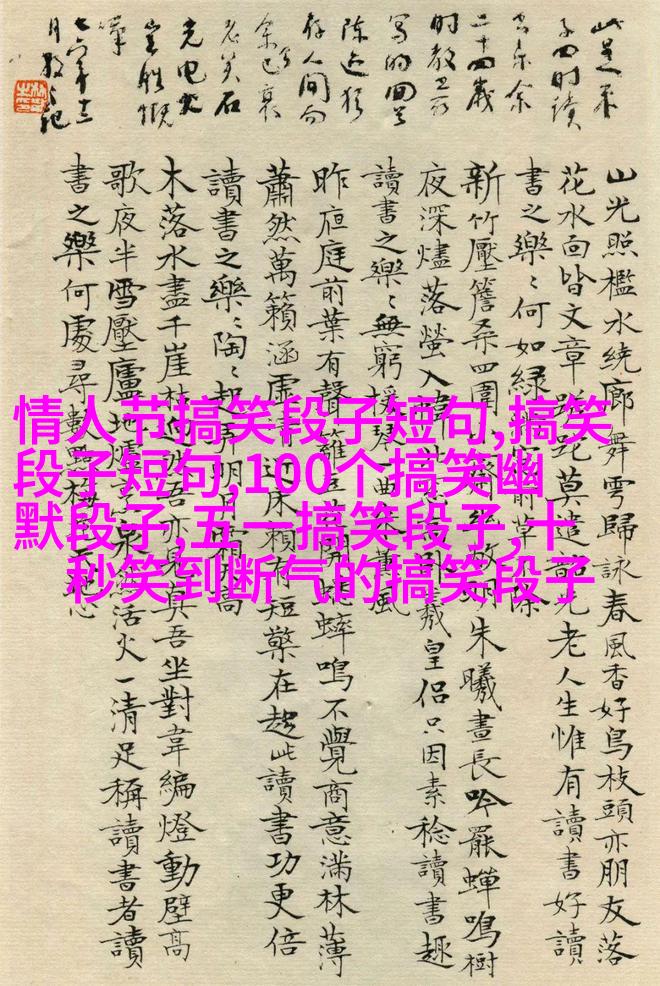 此是
四时读
书乐余
二十四岁
时教
写的回首
陈迹犹
存人间
余已衰
老矣石
光电火
岂胜慨
七六年十二
月 记
山光照檻水繞廊舞雩歸詠春風香好鳥枝頭亦朋友落
花水面皆文章蹉跎莫遣韶光老人生惟有讀書好讀
書之樂〻何如綠滿窗前草不除
新竹壓簷桑四圍小齋幽敞明朱曦晝長吟罷蟬鳴樹
夜深燼落螢入幃 羲皇侶只因素稔讀書趣
讀書之樂〻無窮援琴一曲來薰風
昨夜庭前葉有聲籬豆花開蟋蟀鳴不覺商意滿林薄
蕭然萬籟涵虛清近床賴有短檠在趁此讀書功更倍
讀書之樂〻陶〻起弄明月霜天高
木落水盡千崖枯迥然吾亦見真吾坐對韋編燈動壁高
歌夜半雪壓廬地爐茶鼎烹活火一清足稱讀書者讀
書之樂何處尋數點梅花天地心
情人节搞笑段子短句,搞笑
段子短句,100个搞笑幽
默段子,五一搞笑段子,十
秒笑到断气的搞笑段子